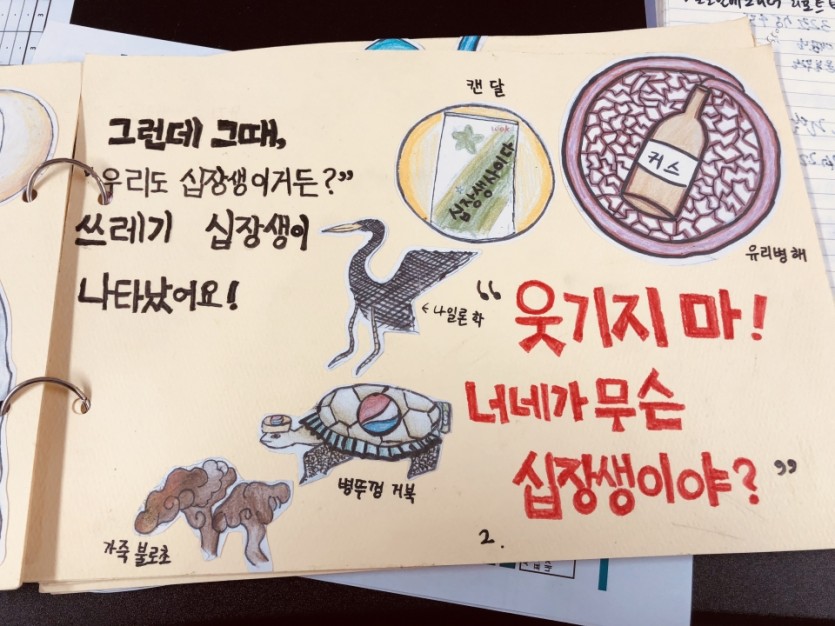 그런데 그때,
"우리도 십장생이거든?"
쓰레기 십장생이
나타났어요!
캔 달
십장생사이다
커스
유리병 해
←나일론 학
"웃기지 마!
너네가 무슨
십장생이야?"
병뚜껑 거북
가죽 불로초
2.